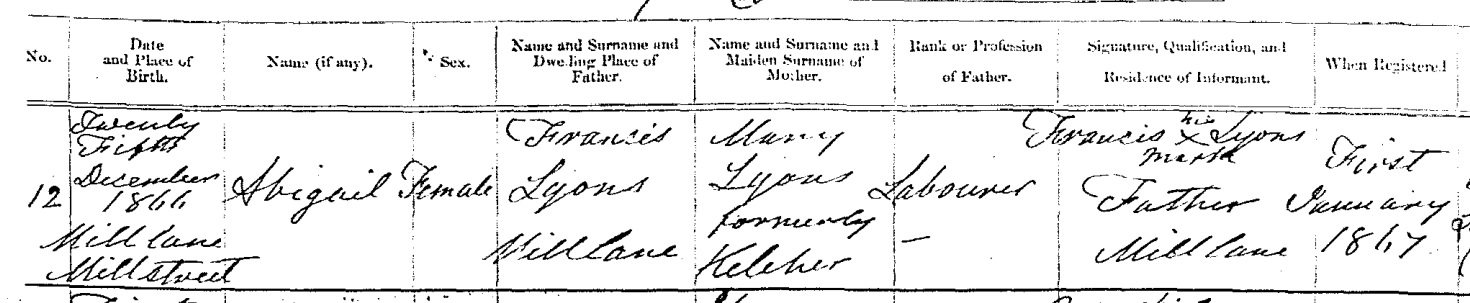 No.
Date
and Place of
Birth.
Name (if any).
Sex.
Name and Surname and
Dwelling Place of
Father.
Name and Surname and
Maiden Surname of
Mother.
Rank or Profession
of Father.
Signature, Qualification, and
Residence of Informant.
When Registered
12
Twenty
Fifth
December
1866
Mill lane
Millstreet
Abigail
Female
Francis
Lyons
Mill lane
Mary
Lyons
formerly
Keleher
Labourer
—
Francis his x Lyons
mark
Father
Mill lane
First
January
1867